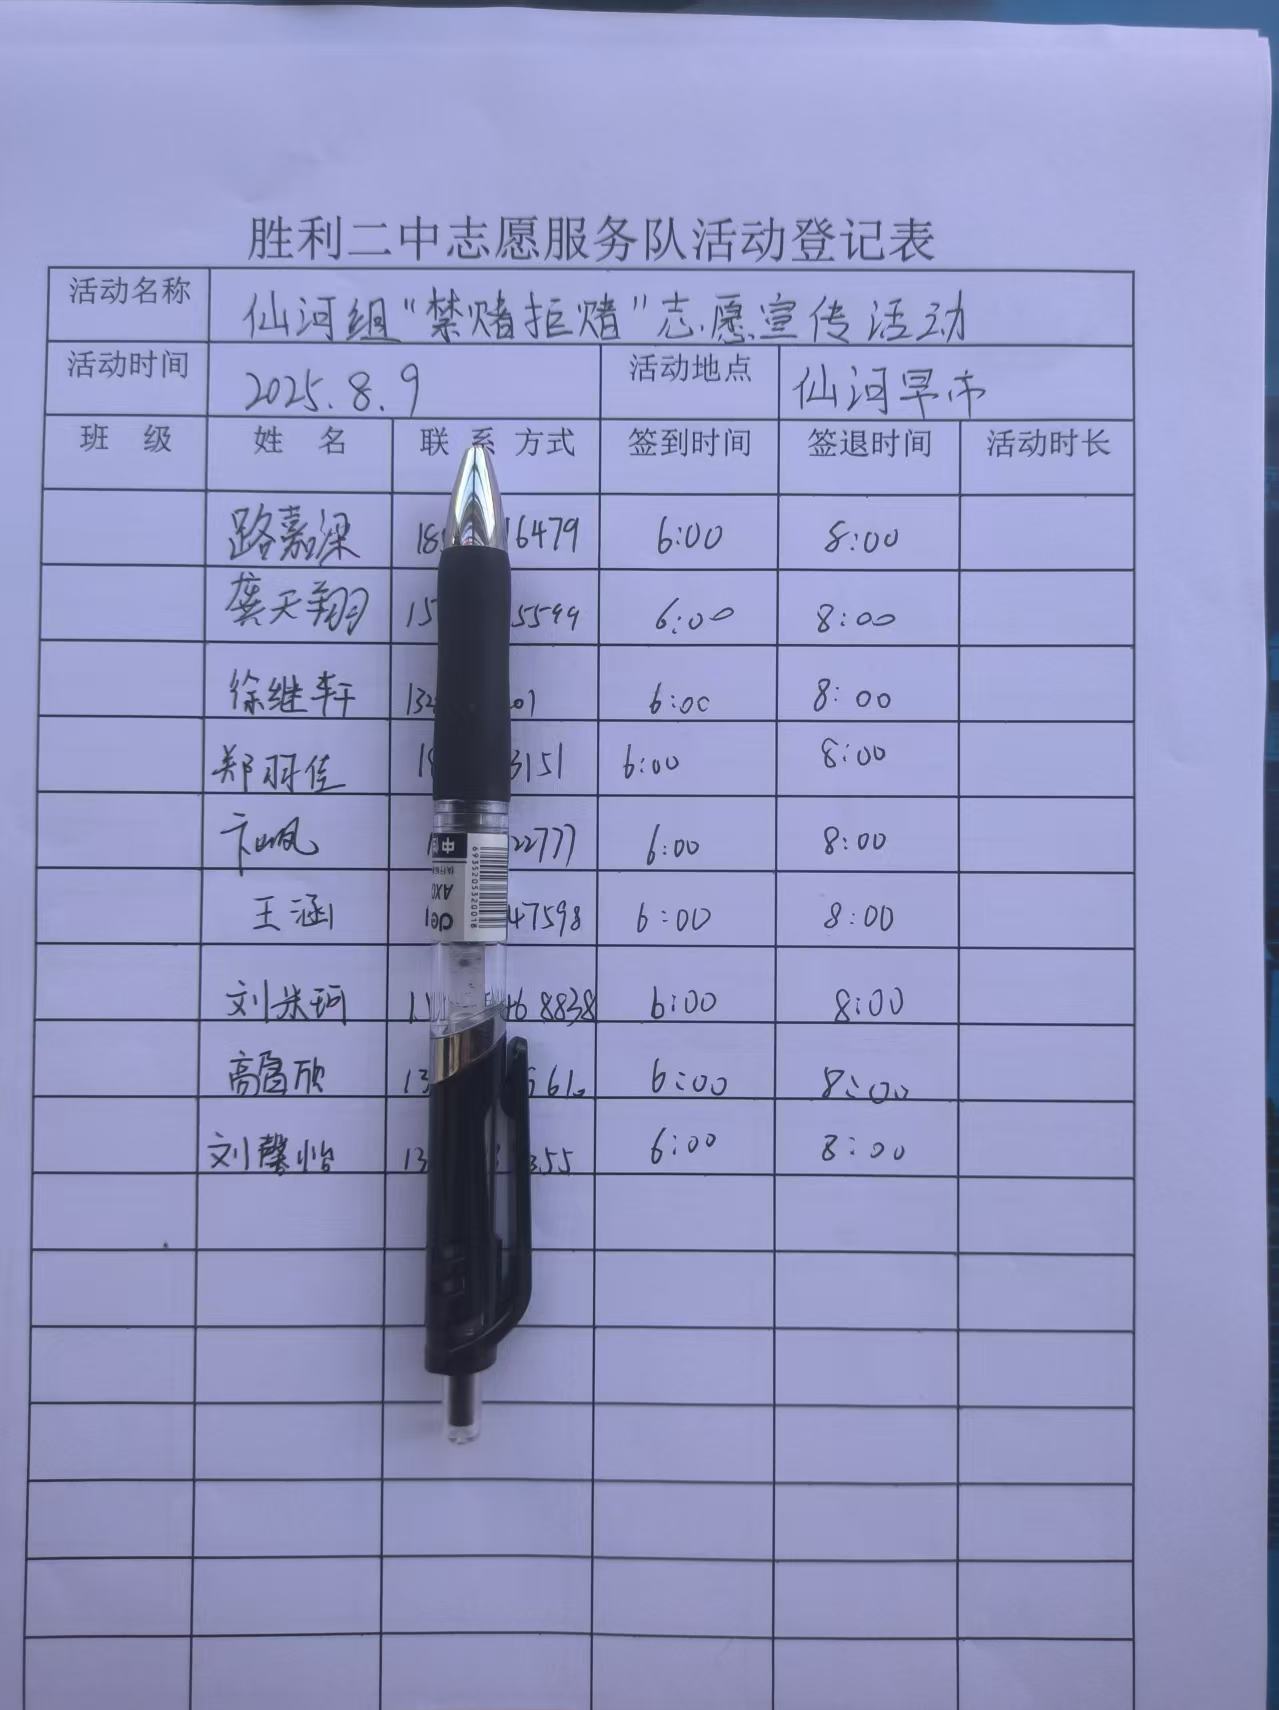 胜利二中志愿服务队活动登记表
活动名称 仙河组"禁赌拒赌"志愿宣传活动
活动时间 2025.8.9 活动地点 仙河早市
班 级 姓 名 联 系 方式 签到时间 签退时间 活动时长
路嘉梁 18 16479 6:00 8:00
龚天翔 15 5599 6:00 8:00
徐继轩 132 01 6:00 8:00
郑羽佳 18 3151 6:00 8:00
卞 22777 6:00 8:00
王涵 47598 6:00 8:00
刘米珂 468838 6:00 8:00
高 欣 13 6:00 8:00
刘馨怡 13 355 6:00 8:00
中
AXC
deli
6935205320018